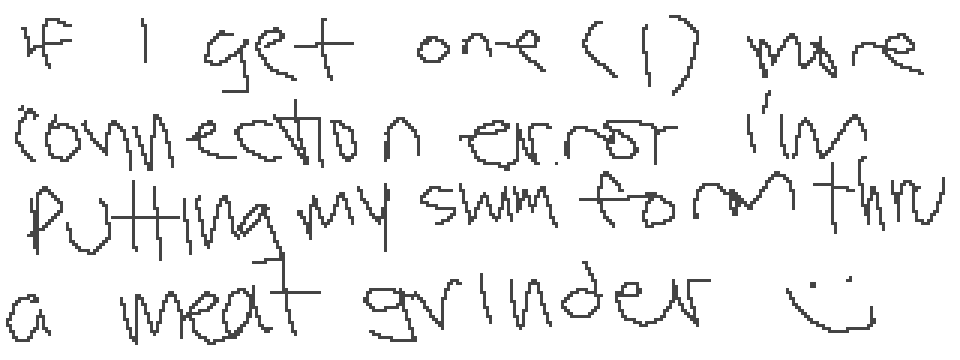 if I get one (1) more
connection error i'm
putting my swim form thru
a meat grinder :)